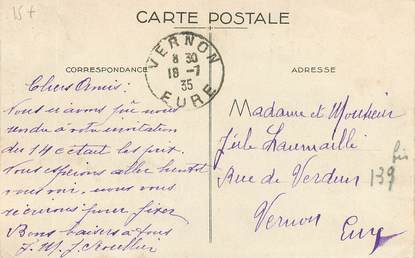 15+
CARTE POSTALE
VERNON
8 30
18 -7
35
EURE
CORRESPONDANCE
Chers Amis:
Nous n'avons pû nous
rendre à votre invitation
du 14 c'était les prix.
Nous espérions aller bientôt
vous voir, nous vous
écrirons pour fixer
Bons baisers à tous
J. M. J.
ADRESSE
Madame et Monsieur
Jule
Rue de Verdun 139 bis
Vernon
Eure